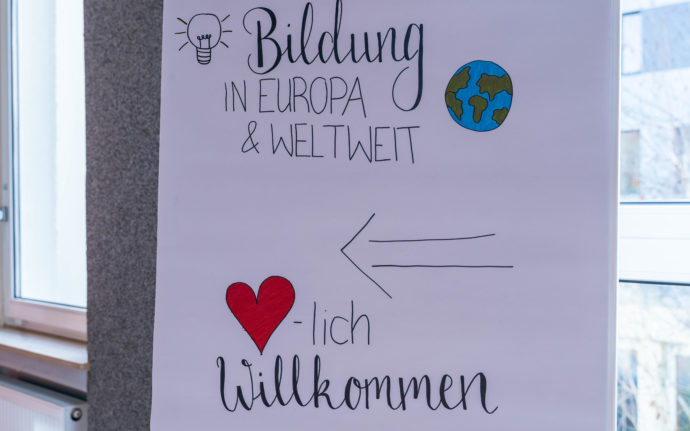 Bildung
IN EUROPA
& WELTWEIT
-lich
Willkommen